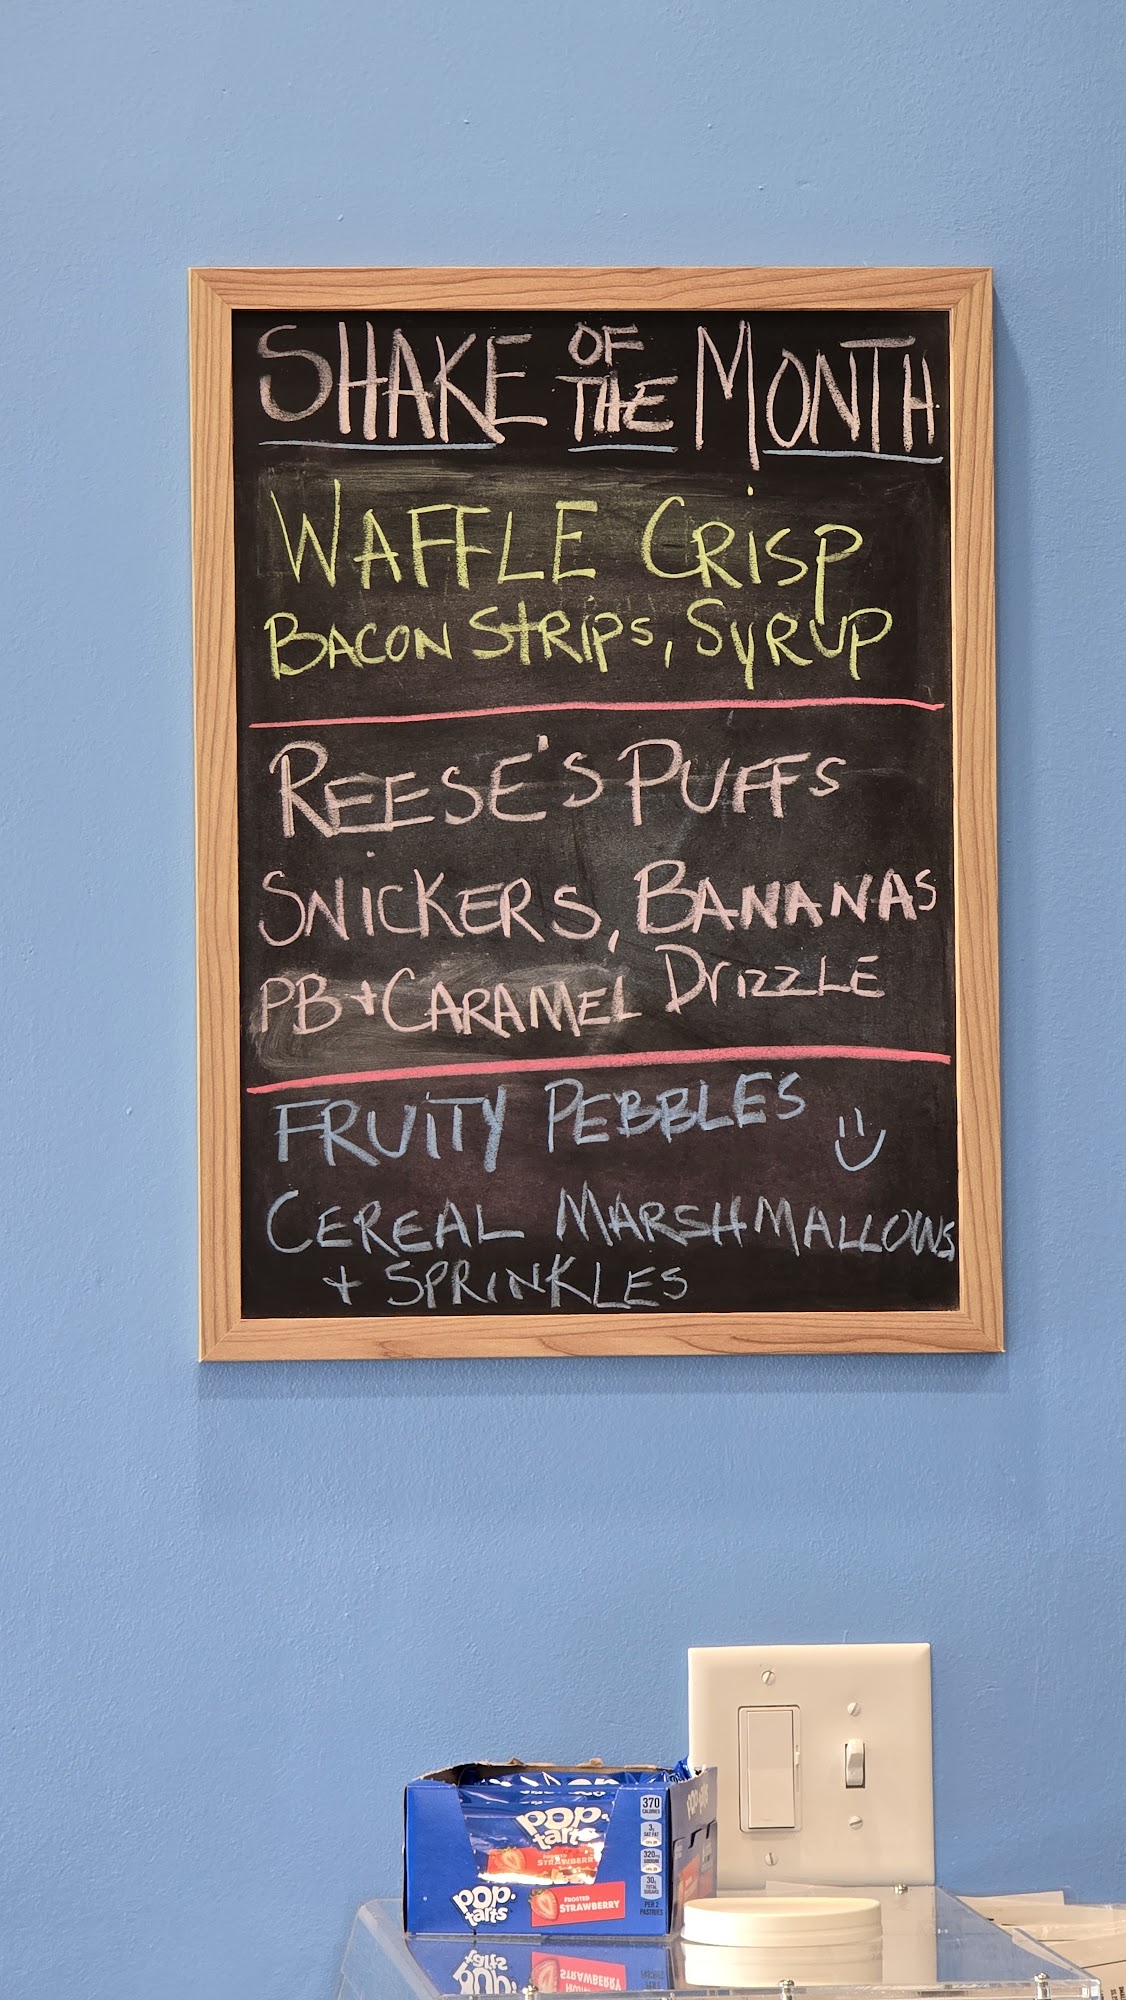 SHAKE OF THE MONTH
WAFFLE CRISP
BACON STRIPS, SYRUP
REESE'S PUFFS
SNICKERS, BANANAS
PB + CARAMEL DRIZZLE
FRUITY PEBBLES
CEREAL MARSHMALLOWS
+ SPRINKLES
pop. tarts
FROSTED STRAWBERRY
370 CALORIES
3g SAT FAT
320mg SODIUM
30g TOTAL SUGARS
PER 2 PASTRIES
pop. tarts
FROSTED STRAWBERRY